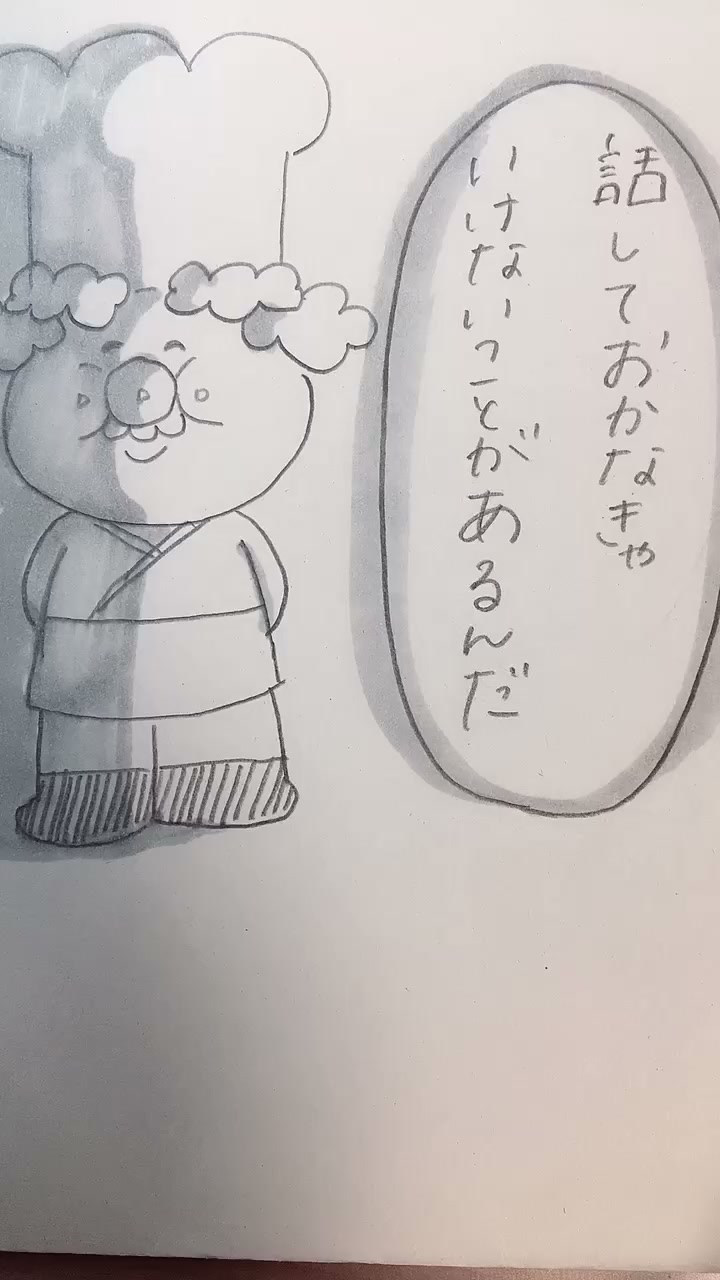 話しておかなきゃ
いけないことがあるんだ